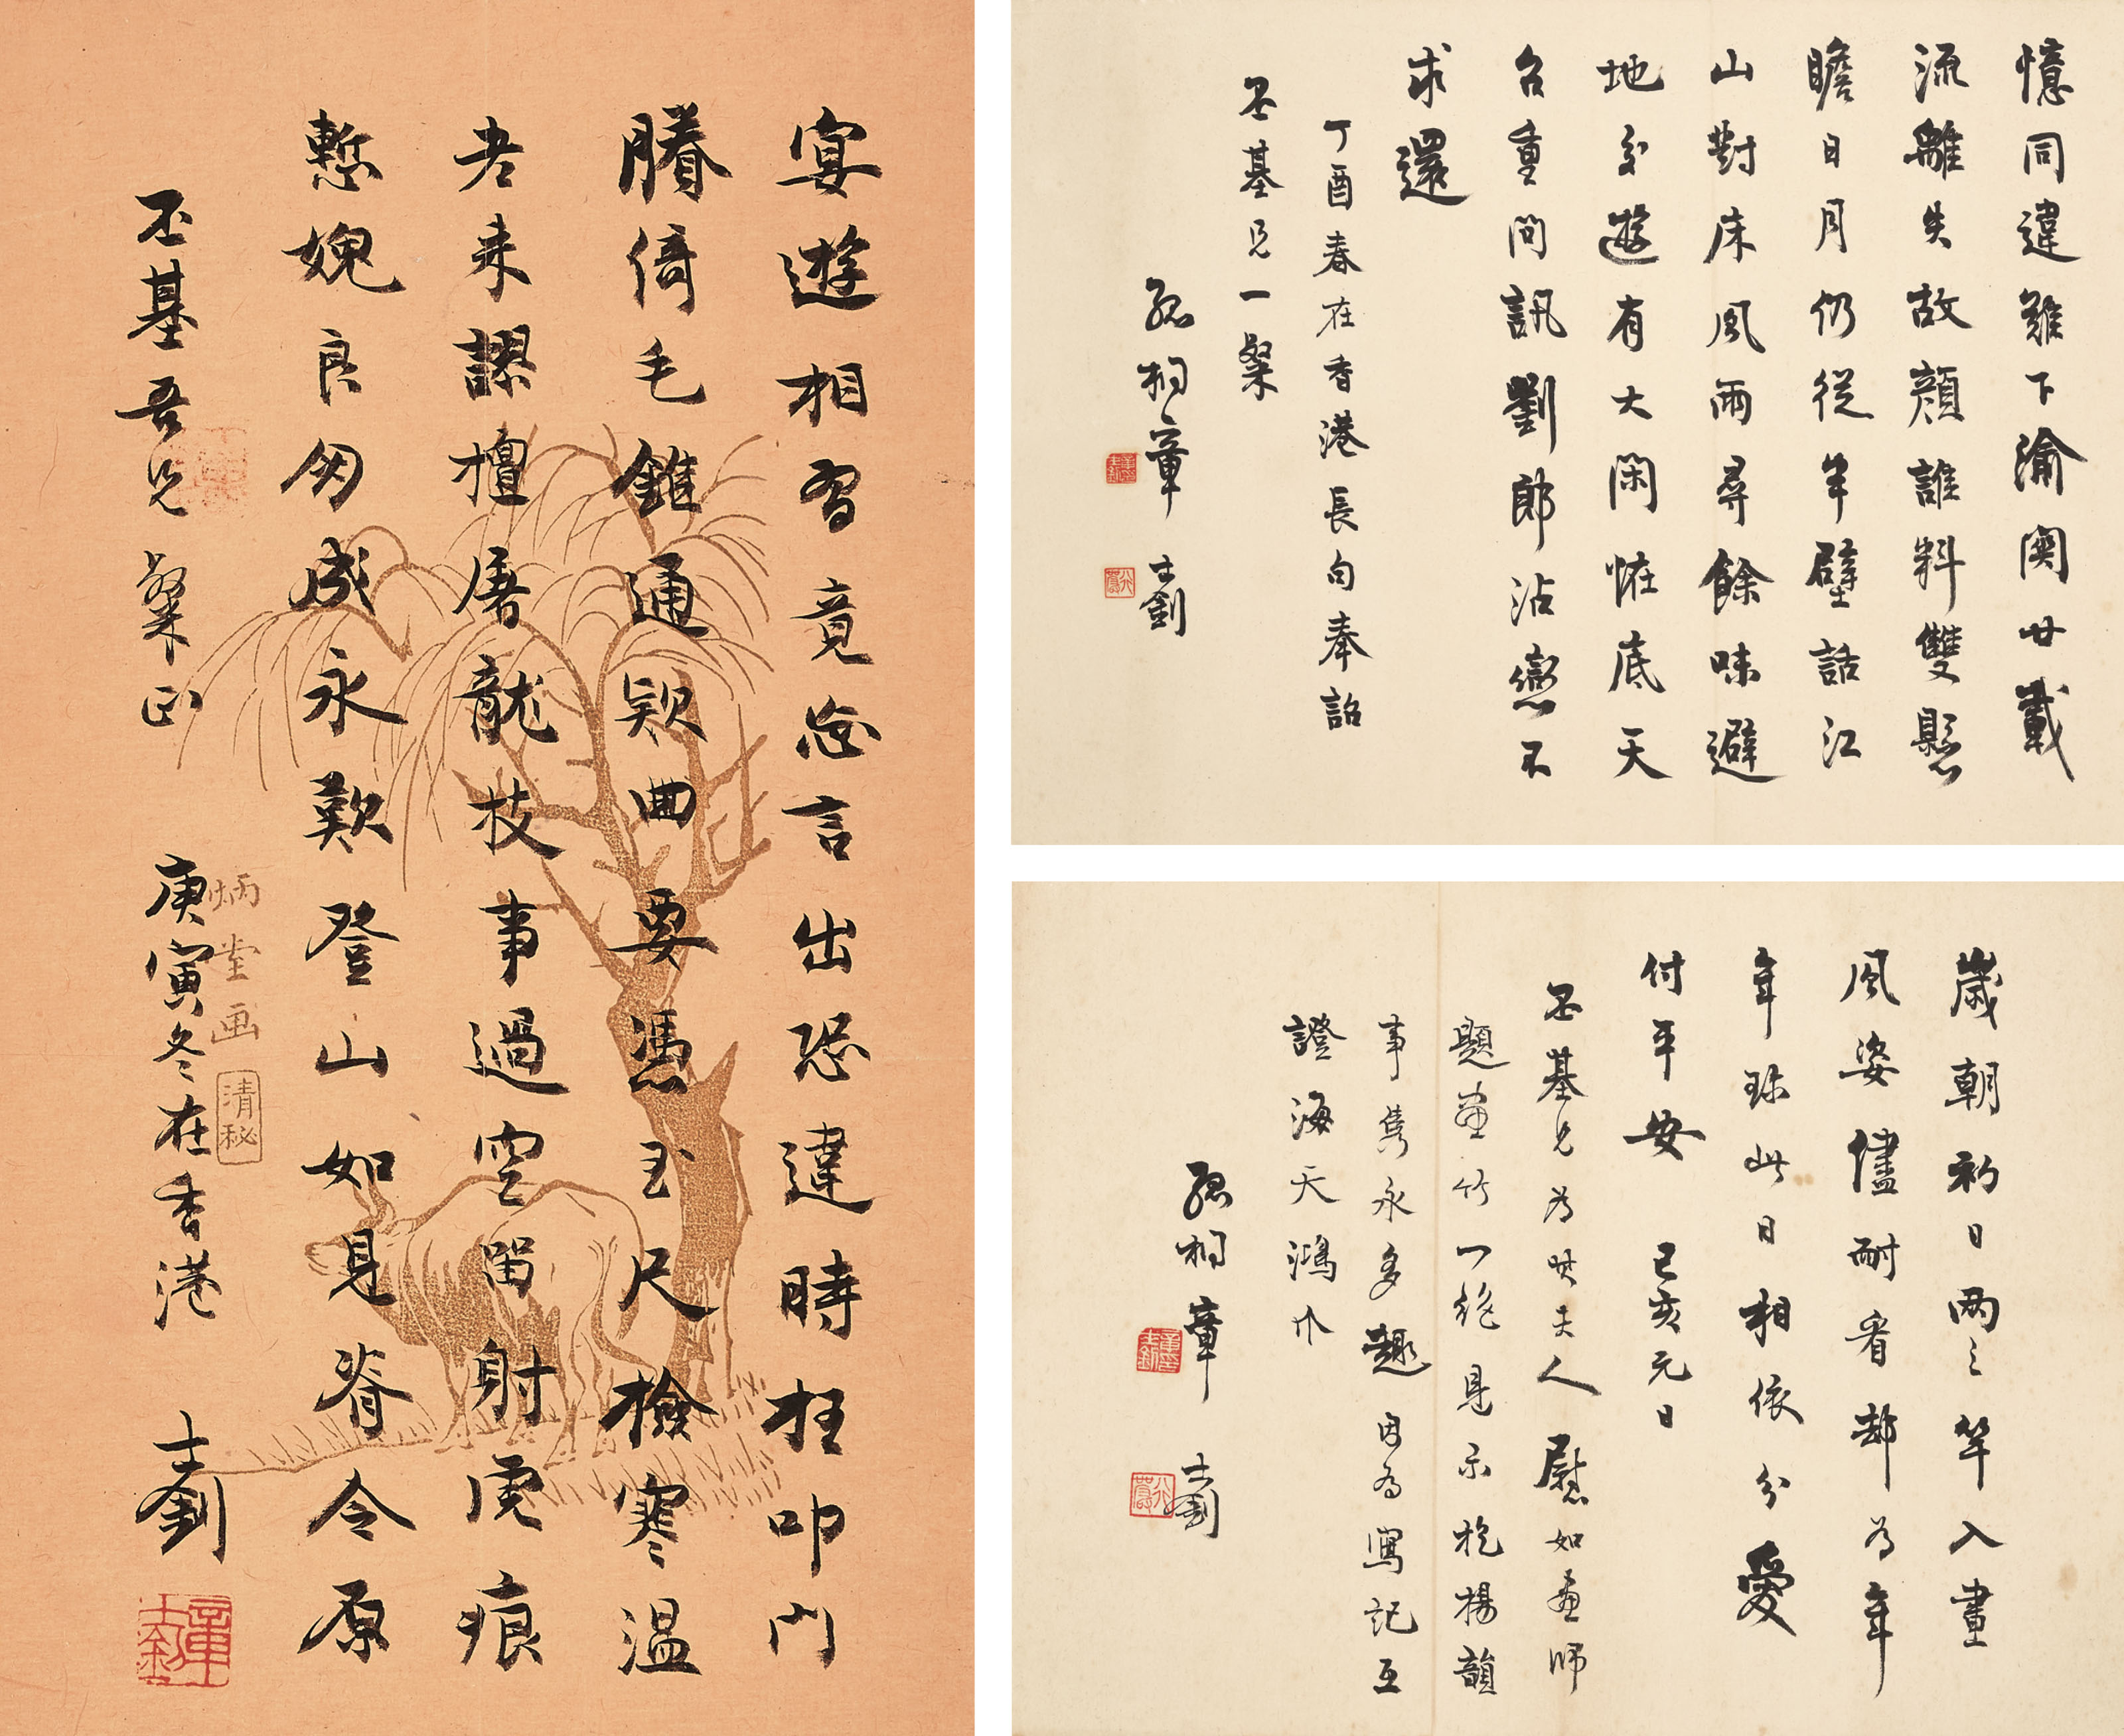 宴遊相習竟忘言出恐違時枉叩門
賸倚毛錐通款曲要憑玉尺檢寒温
老来謬擅屠龍技事過空留射虎痕
慙媿良朋成永歎登山如見脊令原
丕基吾兄粲正
庚寅冬在香港
士釗
炳堂画
清秘
憶同違難下渝關廿載
流離失故顏誰料雙懸
瞻日月仍從半壁話江
山對床風雨尋餘味避
地交遊有大閑恠底天
台重問訊劉郎沾戀不
求還
丁酉春在香港長句奉詒
丕基兄一粲
孤桐章士釗
歲朝初日兩々竿入畫
風姿儘耐看却為年
年珎此日相依分愛
付平安
己亥元日
丕基兄为哄夫人慰如畫師
題畫竹一絶見示抱揚韻
事雋永多趣因為寫記互
證海天鴻爪
孤桐章士釗